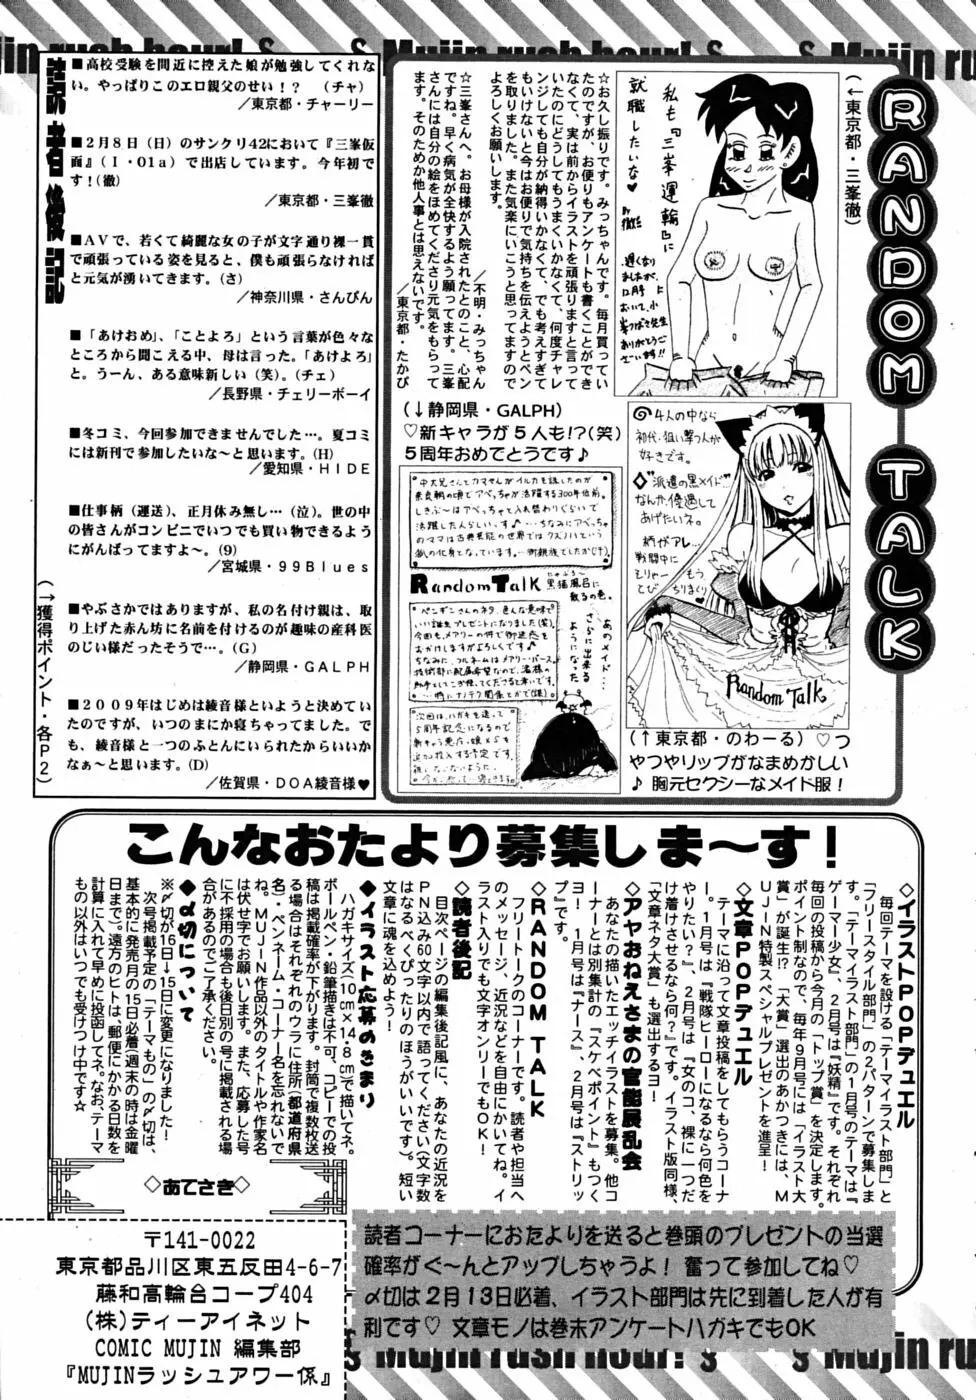 Mujin rush hour!
RANDOM TALK
(←東京都・三峯徹)
私も『三峯運輸』に
就職したいな♡
☆お久し振りです。みっちゃんです。毎月買ってい
たのですが、お便りもアンケートも書くことができ
なくて、実は前からイラストを頑張りますと言って
いたのにどうしてもうまくいかなくて、何度チャレ
ンジしても自分が納得いかなくて、でも考えすぎて
もいけないと今はお便りで気持ちを伝えようとペン
を取りました。また気楽にいこうと思ってますので
よろしくお願いします。
／不明・みっちゃん
☆三峯さんへ。お母様が入院されたとのこと、心配
ですね。早く病気が全快するよう願ってます。三峯
さんには自分の絵をほめてくださり元気をもらって
ます。そのためか他人事とは思えないです。
／東京都・たかぴ
(↓静岡県・GALPH)
♡新キャラが5人も!?(笑)
5周年おめでとうです♪
Random Talk
◎4人の中なら
初代・狙い撃つ人が
好きです。
◇“派遣の黒メイド”
なんか優遇して
あげたいネ。
Random Talk
(↑東京都・のわーる) ♡つ
やつやリップがなまめかしい
♪胸元セクシーなメイド服！
読者後記
■高校受験を間近に控えた娘が勉強してくれな
い。やっぱりこのエロ親父のせい！？　(チャ)
／東京都・チャーリー
■2月8日（日）のサンクリ42において『三峯仮
面』(I・01a)で出店しています。今年初で
す！(徹)
／東京都・三峯徹
■AVで、若くて綺麗な女の子が文字通り裸一貫
で頑張っている姿を見ると、僕も頑張らなければ
と元気が湧いてきます。(さ)
／神奈川県・さんぴん
■「あけおめ」、「ことよろ」という言葉が色々な
ところから聞こえる中、母は言った。「あけよろ」
と。うーん、ある意味新しい（笑）。(チェ)
／長野県・チェリーボーイ
■冬コミ、今回参加できませんでした…。夏コミ
には新刊で参加したいな～と思います。(H)
／愛知県・HIDE
■仕事柄（運送）、正月休み無し…（泣）。世の中
の皆さんがコンビニでいつでも買い物できるよう
にがんばってますよ～。(9)
／宮城県・99Blues
■やぶさかではありますが、私の名付け親は、取
り上げた赤ん坊に名前を付けるのが趣味の産科医
のじい様だったそうで…。(G)
／静岡県・GALPH
■2009年はじめは綾音様といようと決めてい
たのですが、いつのまにか寝ちゃってました。で
も、綾音様と一つのふとんにいられたからいいか
なぁ～と思います。(D)
／佐賀県・DOA綾音様♥
(→獲得ポイント・各P2)
こんなおたより募集しま～す！
◇イラストPOPデュエル
毎回テーマを設ける「テーマイラスト部門」と
「フリースタイル部門」の2パターンで募集しま
す。「テーマイラスト部門」の1月号のテーマは『
ゲーマー少女』、2月号は『妖精』です。それぞれ
毎回の投稿から今月の「トップ賞」を決定します。
ポイント制なので、毎年9月号には「イラスト大
賞」が誕生!?「大賞」選出のあかつきには、M
UJIN特製スペシャルプレゼントを進呈！
◇文章POPデュエル
テーマに沿って文章投稿をしてもらうコーナ
ー。1月号は『戦隊ヒーローになるなら何色を
やりたい？』、2月号は『女のコ、裸に一つだ
け着けさせるなら何？』です。イラスト版同様、
「文章ネタ大賞」も選出するヨ！
◇アヤおねえさまの官能展乱会
あなたの描いたエッチイラストを募集。他コ
ーナーとは別集計の「スケベポイント」もつく
ヨ！　1月号は『ナース』、2月号は『ストリッ
プ』です。
◇RANDOM TALK
フリートークのコーナーです。読者や担当へ
のメッセージ、近況などを自由にかいてね。イ
ラスト入りでも文字オンリーでもOK！
◇読者後記
目次ページの編集後記風に、あなたの近況を
PN込み60文字以内で語ってください（文字数
はなるべくぴったりのほうがいいです）。短い
文章に魂を込めよう！
◆イラスト応募のきまり
ハガキサイズ（10cm×14.8cm）で描いてネ。
ボールペン・鉛筆描きは不可、コピーでの投
稿は掲載確率が下がります。封筒で複数枚送
る場合はそれぞれのウラに住所（都道府県
名）・ペンネーム・コーナー名を忘れないで
ね。MUJIN作品以外のタイトルや作家名
は伏せ字でお願いします。また、応募した号
に不採用の場合も後日別の号に掲載される場
合があるのでご了承ください。
◆〆切について
※〆切が16日→15日に変更になりました！
次号掲載予定の「テーマもの」の〆切は、
基本的に発売月の15日必着（週末の時は金曜
日まで）。遠方のヒトは、郵便にかかる日数を
計算に入れて早めに投函してネ。なお、テーマ
もの以外はいつでも受けつけ中です☆
◇あてさき◇
〒141-0022
東京都品川区東五反田4-6-7
藤和高輪台コープ404
(株)ティーアイネット
COMIC MUJIN 編集部
『MUJINラッシュアワー係』
読者コーナーにおたよりを送ると巻頭のプレゼントの当選
確率がぐ～んとアップしちゃうよ！ 奮って参加してね♡
〆切は2月13日必着、イラスト部門は先に到着した人が有
利です♡ 文章モノは巻末アンケートハガキでもOK
Mujin rush hour!